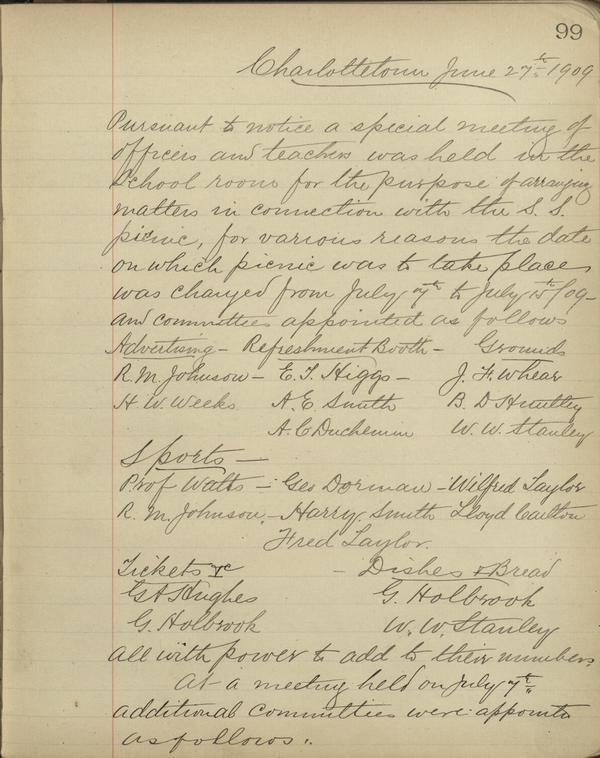 99
Charlottetown June 27th 1909
Pursuant to notice a special meeting of
officers and teachers was held in the
School room for the purpose of arranging
matters in connection with the S. S.
picnic, for various reasons the date
on which picnic was to take place
was changed from July 7th to July 15th/09-
and committees appointed as follows
Advertising - Refreshment Booth - Grounds
R. M. Johnson - E. T. Higgs - J. F. Whear
H. W. Weeks A. E. Smith B. D Huntley
A. C Duchemin W. W. Stanley
Sports -
Prof Watts - Geo Dorman - Wilfred Taylor
R. M. Johnson, - Harry Smith Lloyd Carlton
Fred Taylor.
Tickets &c - Dishes & Bread
G A Hughes G. Holbrook
G. Holbrook W. W. Stanley
all with power to add to their numbers
At a meeting held on July 7th
additional committees were appointed
as follows: